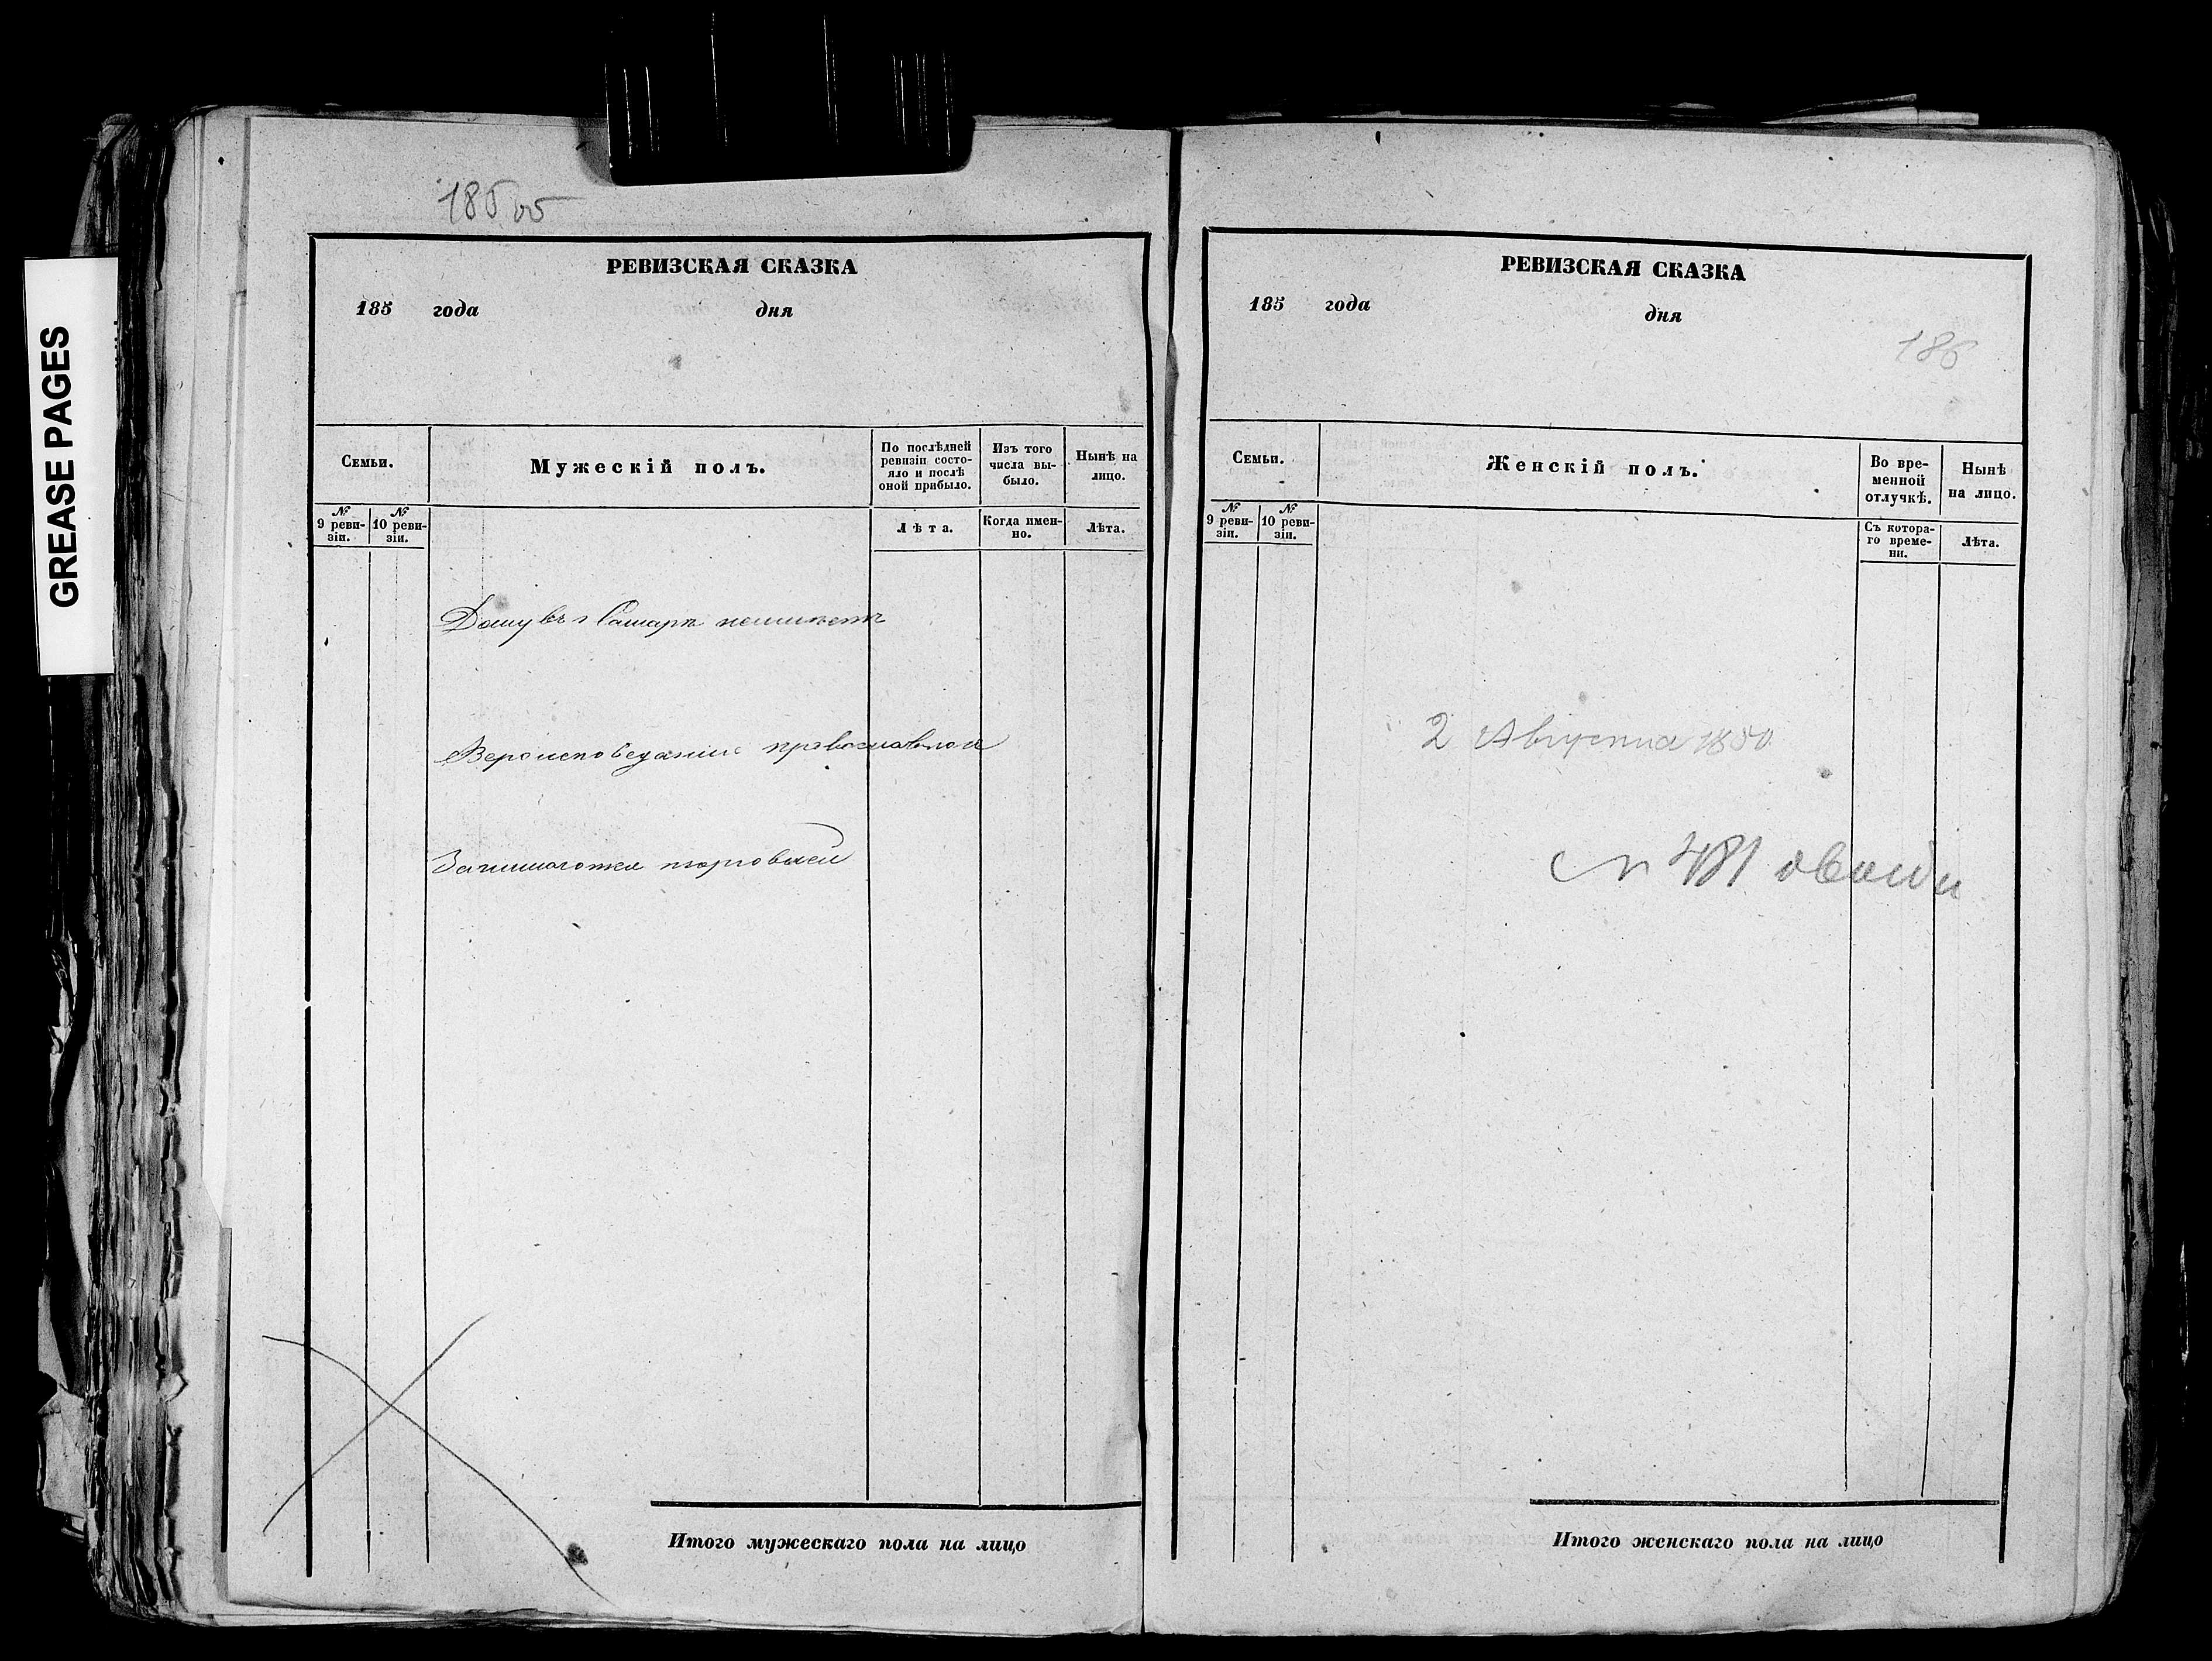 GREASE PAGES
185 об
РЕВИЗСКАЯ СКАЗКА
185 года дня
Семьи.
Мужескій полъ.
По послѣдней ревизіи состояло и послѣ оной прибыло.
Изъ того числа выбыло.
Нынѣ на лицо.
№ 9 ревизіи.
№ 10 ревизіи.
Лѣта.
Когда именно.
Лѣта.
Дому въ г Самарѣ неимѣетъ
Вероисповеданія православнаго
Занимается торговлей
Итого мужескаго пола на лицо
РЕВИЗСКАЯ СКАЗКА
185 года дня
186
Семьи.
Женскій полъ.
Во временной отлучкѣ.
Нынѣ на лицо.
№ 9 ревизіи.
№ 10 ревизіи.
Съ котораго времени.
Лѣта.
2 Августа 1850
№ 481
Итого женскаго пола на лицо